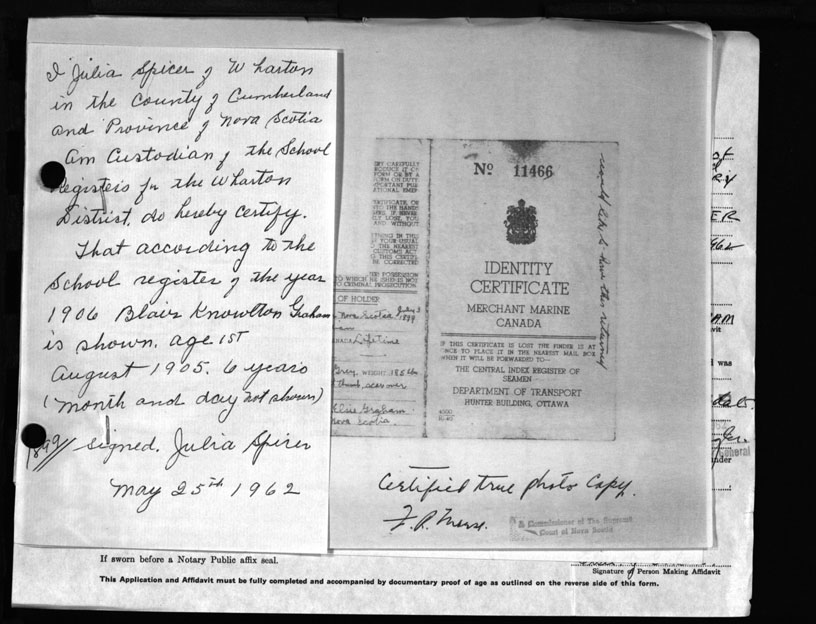 I Julia Spicer of Wharton
in the County of Cumberland
and Province of Nova Scotia
Am Custodian of the School
Registers for the Wharton
District, do hereby certify.
That according to the
School register of the year
1906 Blair Knowlton Graham
is shown, age 1st
August 1905. 6 years
(month and day not shown)
1899//
signed. Julia Spicer
May 25th 1962
TO WHICH HE /SHE IS NOT
TO CRIMINAL PROSECUTION.
OF HOLDER
Nova Scotia July 3
1899
Lifetime
Grey. WEIGHT 185 lbs
thumb, scar over
Elsie Graham
Nova Scotia.
No 11466
IDENTITY
CERTIFICATE
MERCHANT MARINE
CANADA
IF THIS CERTIFICATE IS LOST THE FINDER IS AT
ONCE TO PLACE IT IN THE NEAREST MAIL BOX
WHEN IT WILL BE FORWARDED TO—
THE CENTRAL INDEX REGISTER OF
SEAMEN
DEPARTMENT OF TRANSPORT
HUNTER BUILDING, OTTAWA
would like to have this returned
Certified true photo Copy.
A Commissioner of The Supreme
Court of Nova Scotia
If sworn before a Notary Public affix seal.
Signature of Person Making Affidavit
This Application and Affidavit must be fully completed and accompanied by documentary proof of age as outlined on the reverse side of this form.